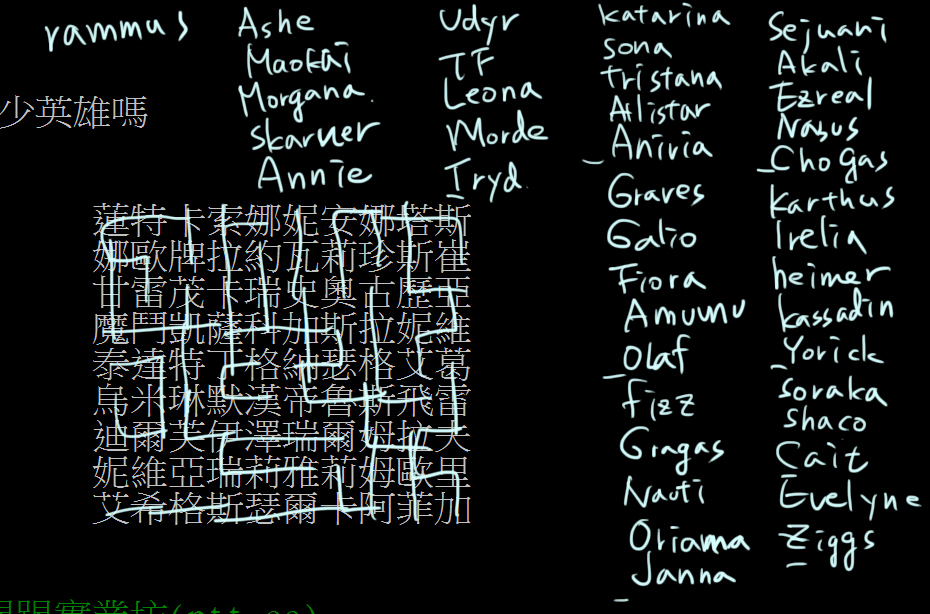 rammus
少英雄嗎
Ashe
Maokai
Morgana
Skarner
Annie
Udyr
TF
Leona
Morde
Tryd
katarina
sona
tristana
Alistar
Anivia
Graves
Galio
Fiora
Amumu
Olaf
fizz
Gragas
Nauti
Oriama
Janna
Sejuani
Akali
Ezreal
Nasus
Chogas
karthus
Irelia
heimer
kassadin
Yorick
soraka
shaco
Cait
Evelyne
Ziggs
蓮特卡索娜妮安娜塔斯
娜歐牌拉約瓦莉珍斯崔
甘雷茂卡瑞史奧古歷亞
魔鬥凱薩科加斯拉妮維
泰達特丁格納瑟格艾葛
烏米琳默漢帝魯斯飛雷
迪爾芙伊澤瑞爾姆拉夫
妮維亞瑞莉雅莉姆歐里
艾希格斯瑟爾卡阿菲加